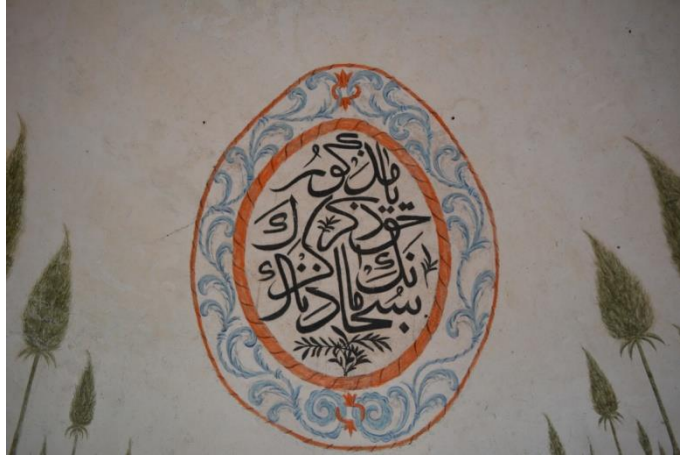 سبحانك ما ذكرناك
حق ذكرك
يا مذكور